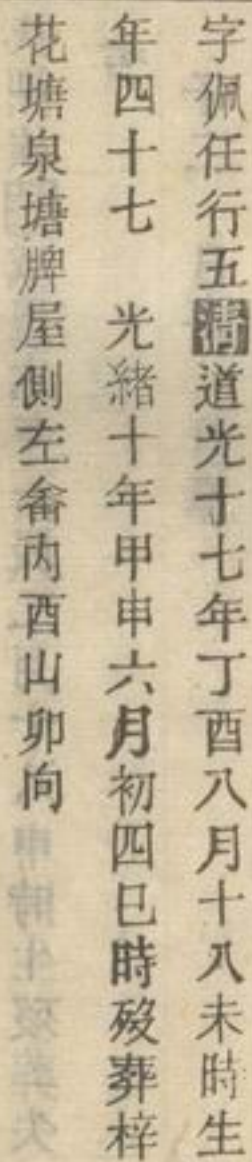 字佩任行五清道光十七年丁酉八月十八未時生
年四十七 光緒十年甲申六月初四巳時歿葬梓
花塘泉塘牌屋側左畲内酉山卯向